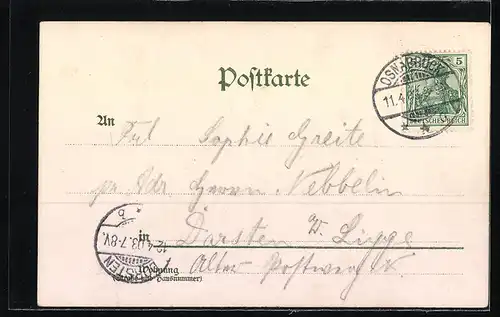 Postkarte
OSNABRÜCK
11.4
5
DEUTSCHES REICH
An
Frl Sophie Greite
pr. Adr. Herrn Nebbelin
in
Dorsten W. Lippe
12.4.03.7-8V.
DORSTEN
Wohnung
Alter Postweg
(Straße und Hausnummer)